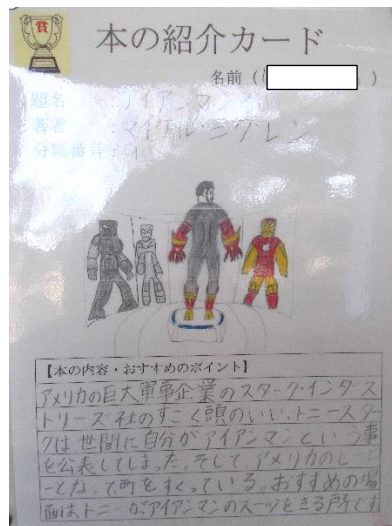 賞
本の紹介カード
名前( )
題名 :アイアンマン
著者 :マイケル・シグレン
分類番号:91
【本の内容・おすすめのポイント】
アメリカの巨大軍事企業のスターク・インダス
トリーズ社のすごく頭のいい、トニースター
クは世間に自分がアイアンマンという事
を公表してしまった。そして、アメリカのヒーロ
ーとなって町をすくっている。おすすめの場
面は、トニーがアイアンマンのスーツをきる所です